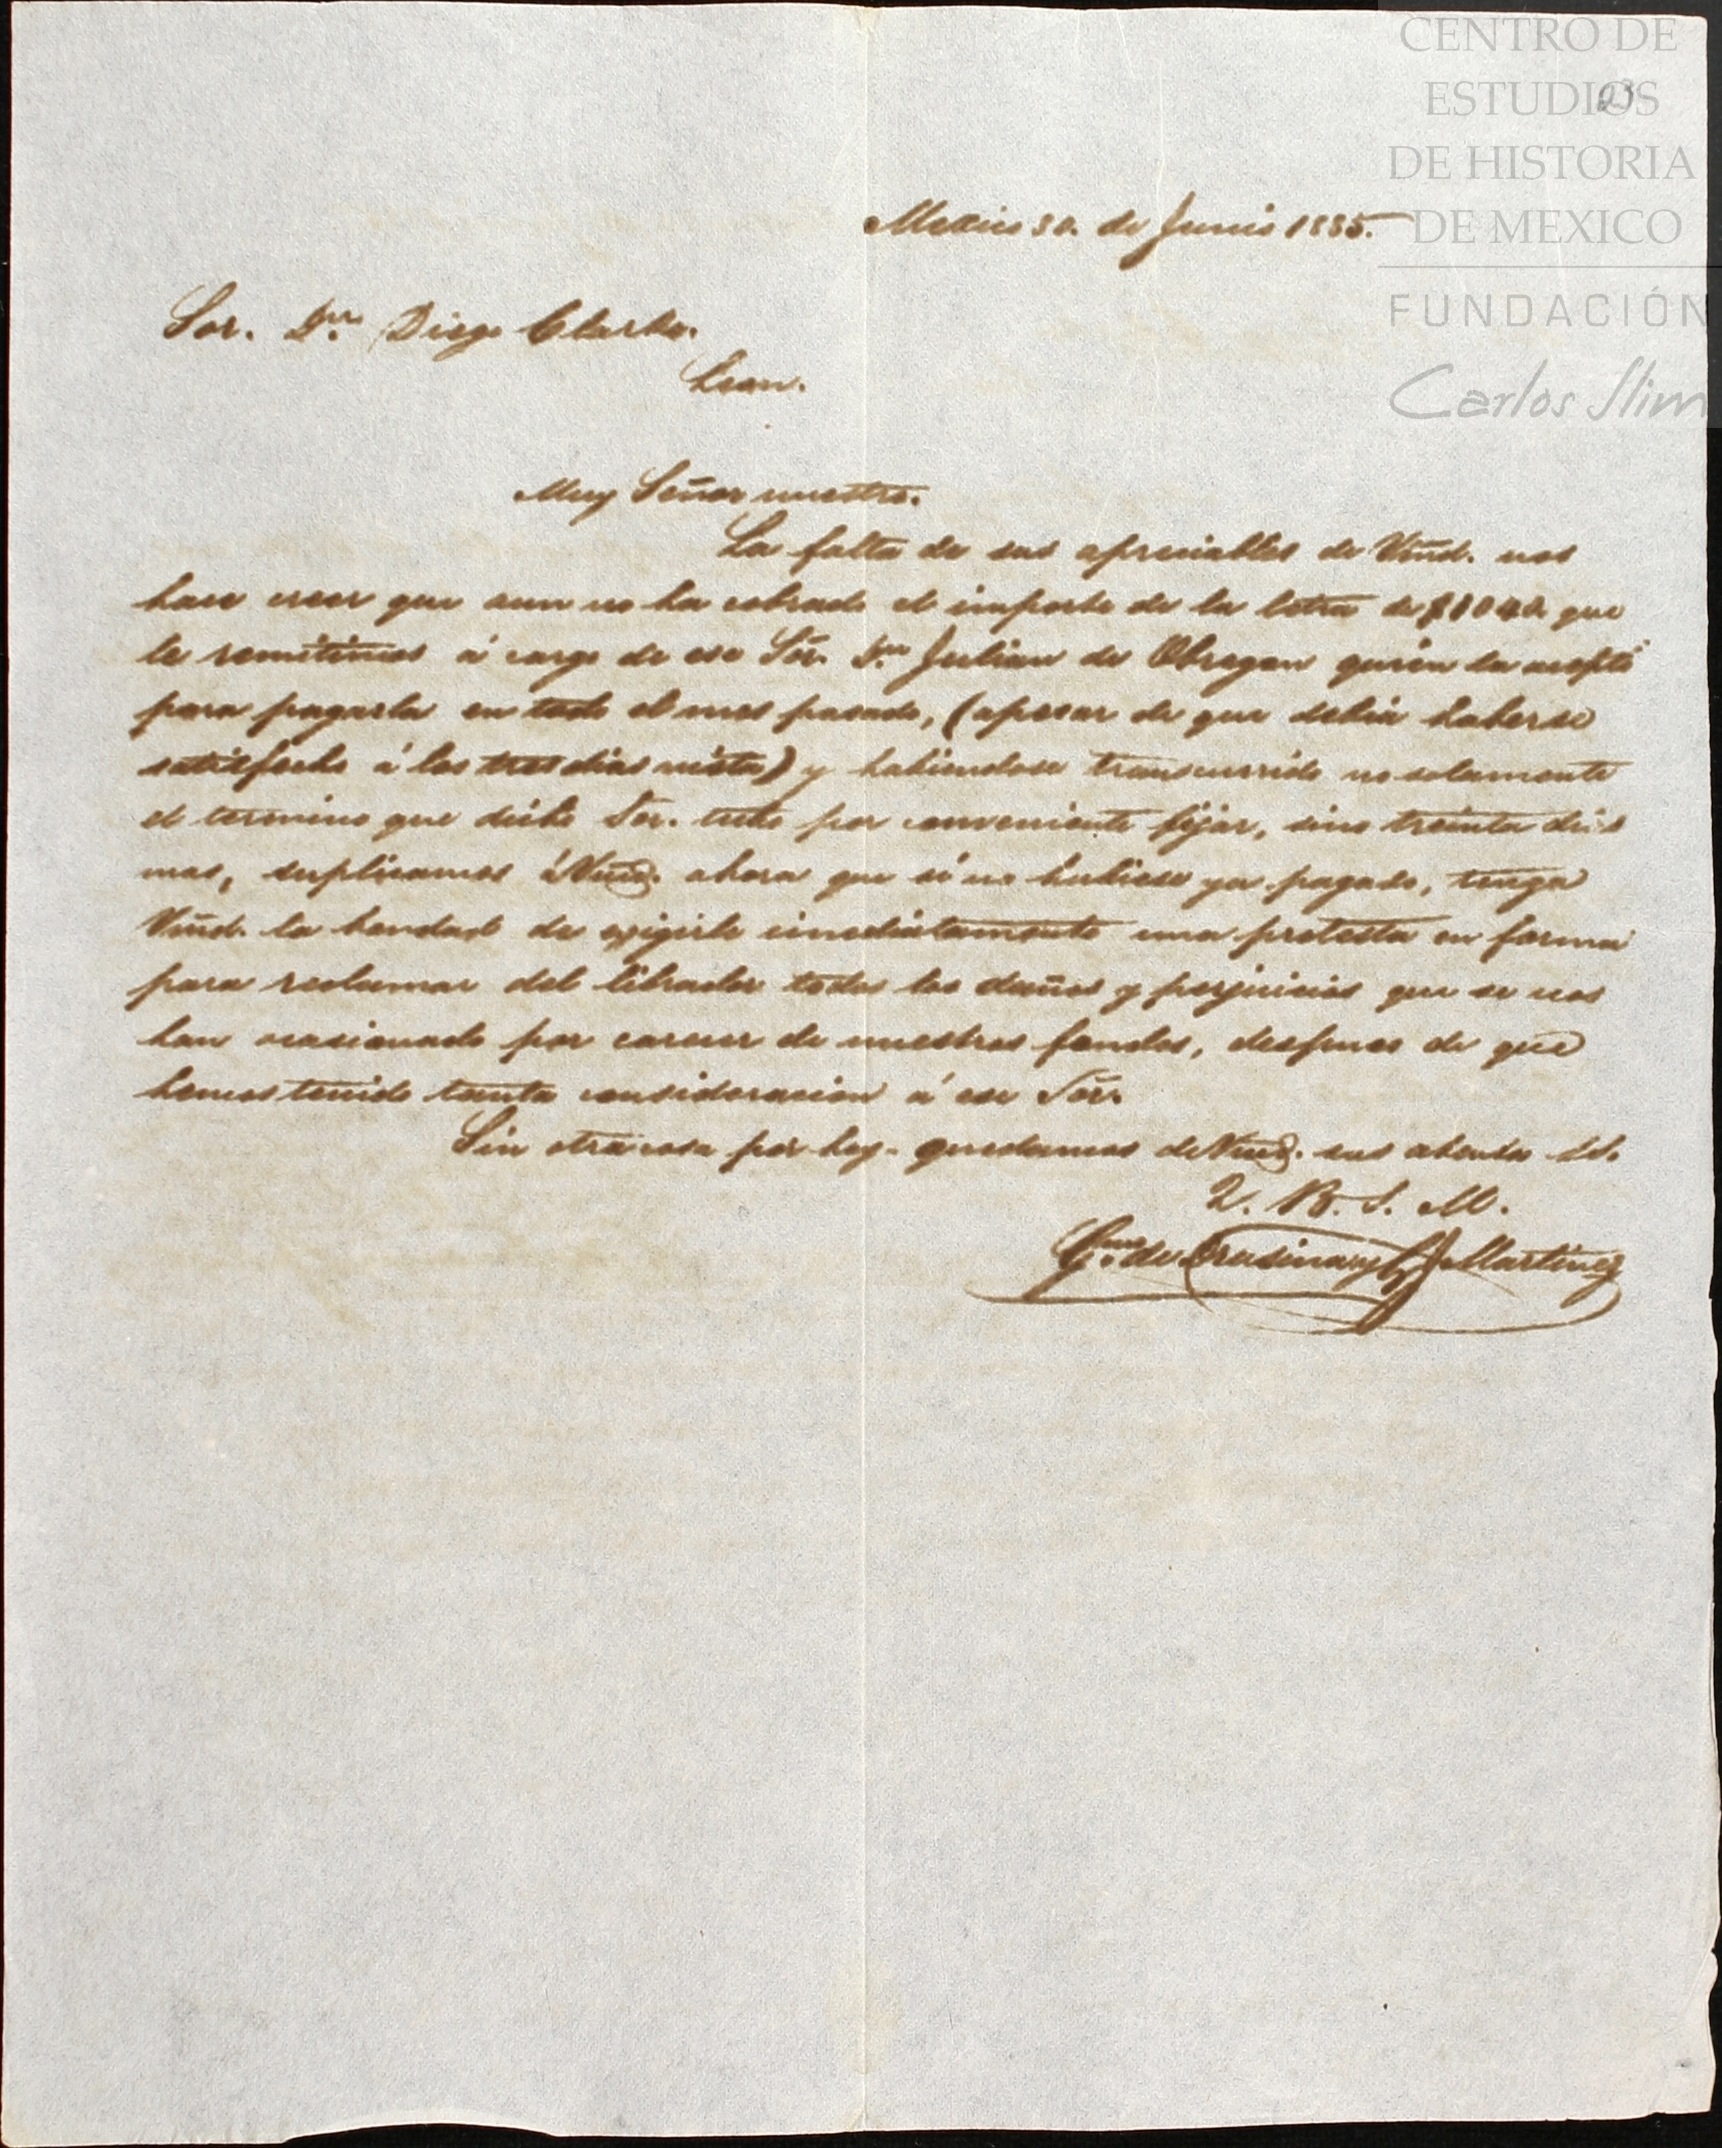 CENTRO DE
ESTUDIOS
DE HISTORIA
DE MEXICO
FUNDACIÓN
Carlos Slim
23
Mexico 30. de Junio 1885.
Sor. Dn. Diego Clarke.
Leon.
Muy Señor nuestro.
La falta de sus apreciables de Vmd. nos
hace creer que aun no ha cobrado el importe de la letra de $1040 que
le remitimos á cargo de ese Sor. Dn. Julian de Obregon quién la aceptó
para pagarla en todo el mes pasado, (apesar de que debia haberse
satisfecho á los tres dias vista) y habiendose transcurrido no solamente
el termino que dicho Sor. tubo por conveniente fijar, sino treinta dias
mas, suplicamos á Vmd. ahora que si no hubiese ya pagado, tenga
Vmd. la bondad de exigirle inmediatamente una protesta en forma
para reclamar del librador todos los daños y perjuicios que se nos
han ocasionado por carecer de nuestros fondos, despues de que
hemos tenido tanta consideracion á ese Sor.
Sin otra cosa por hoy quedamos de Vmd. sus atentos SS.
Q. B. S. M.
de y Martinez